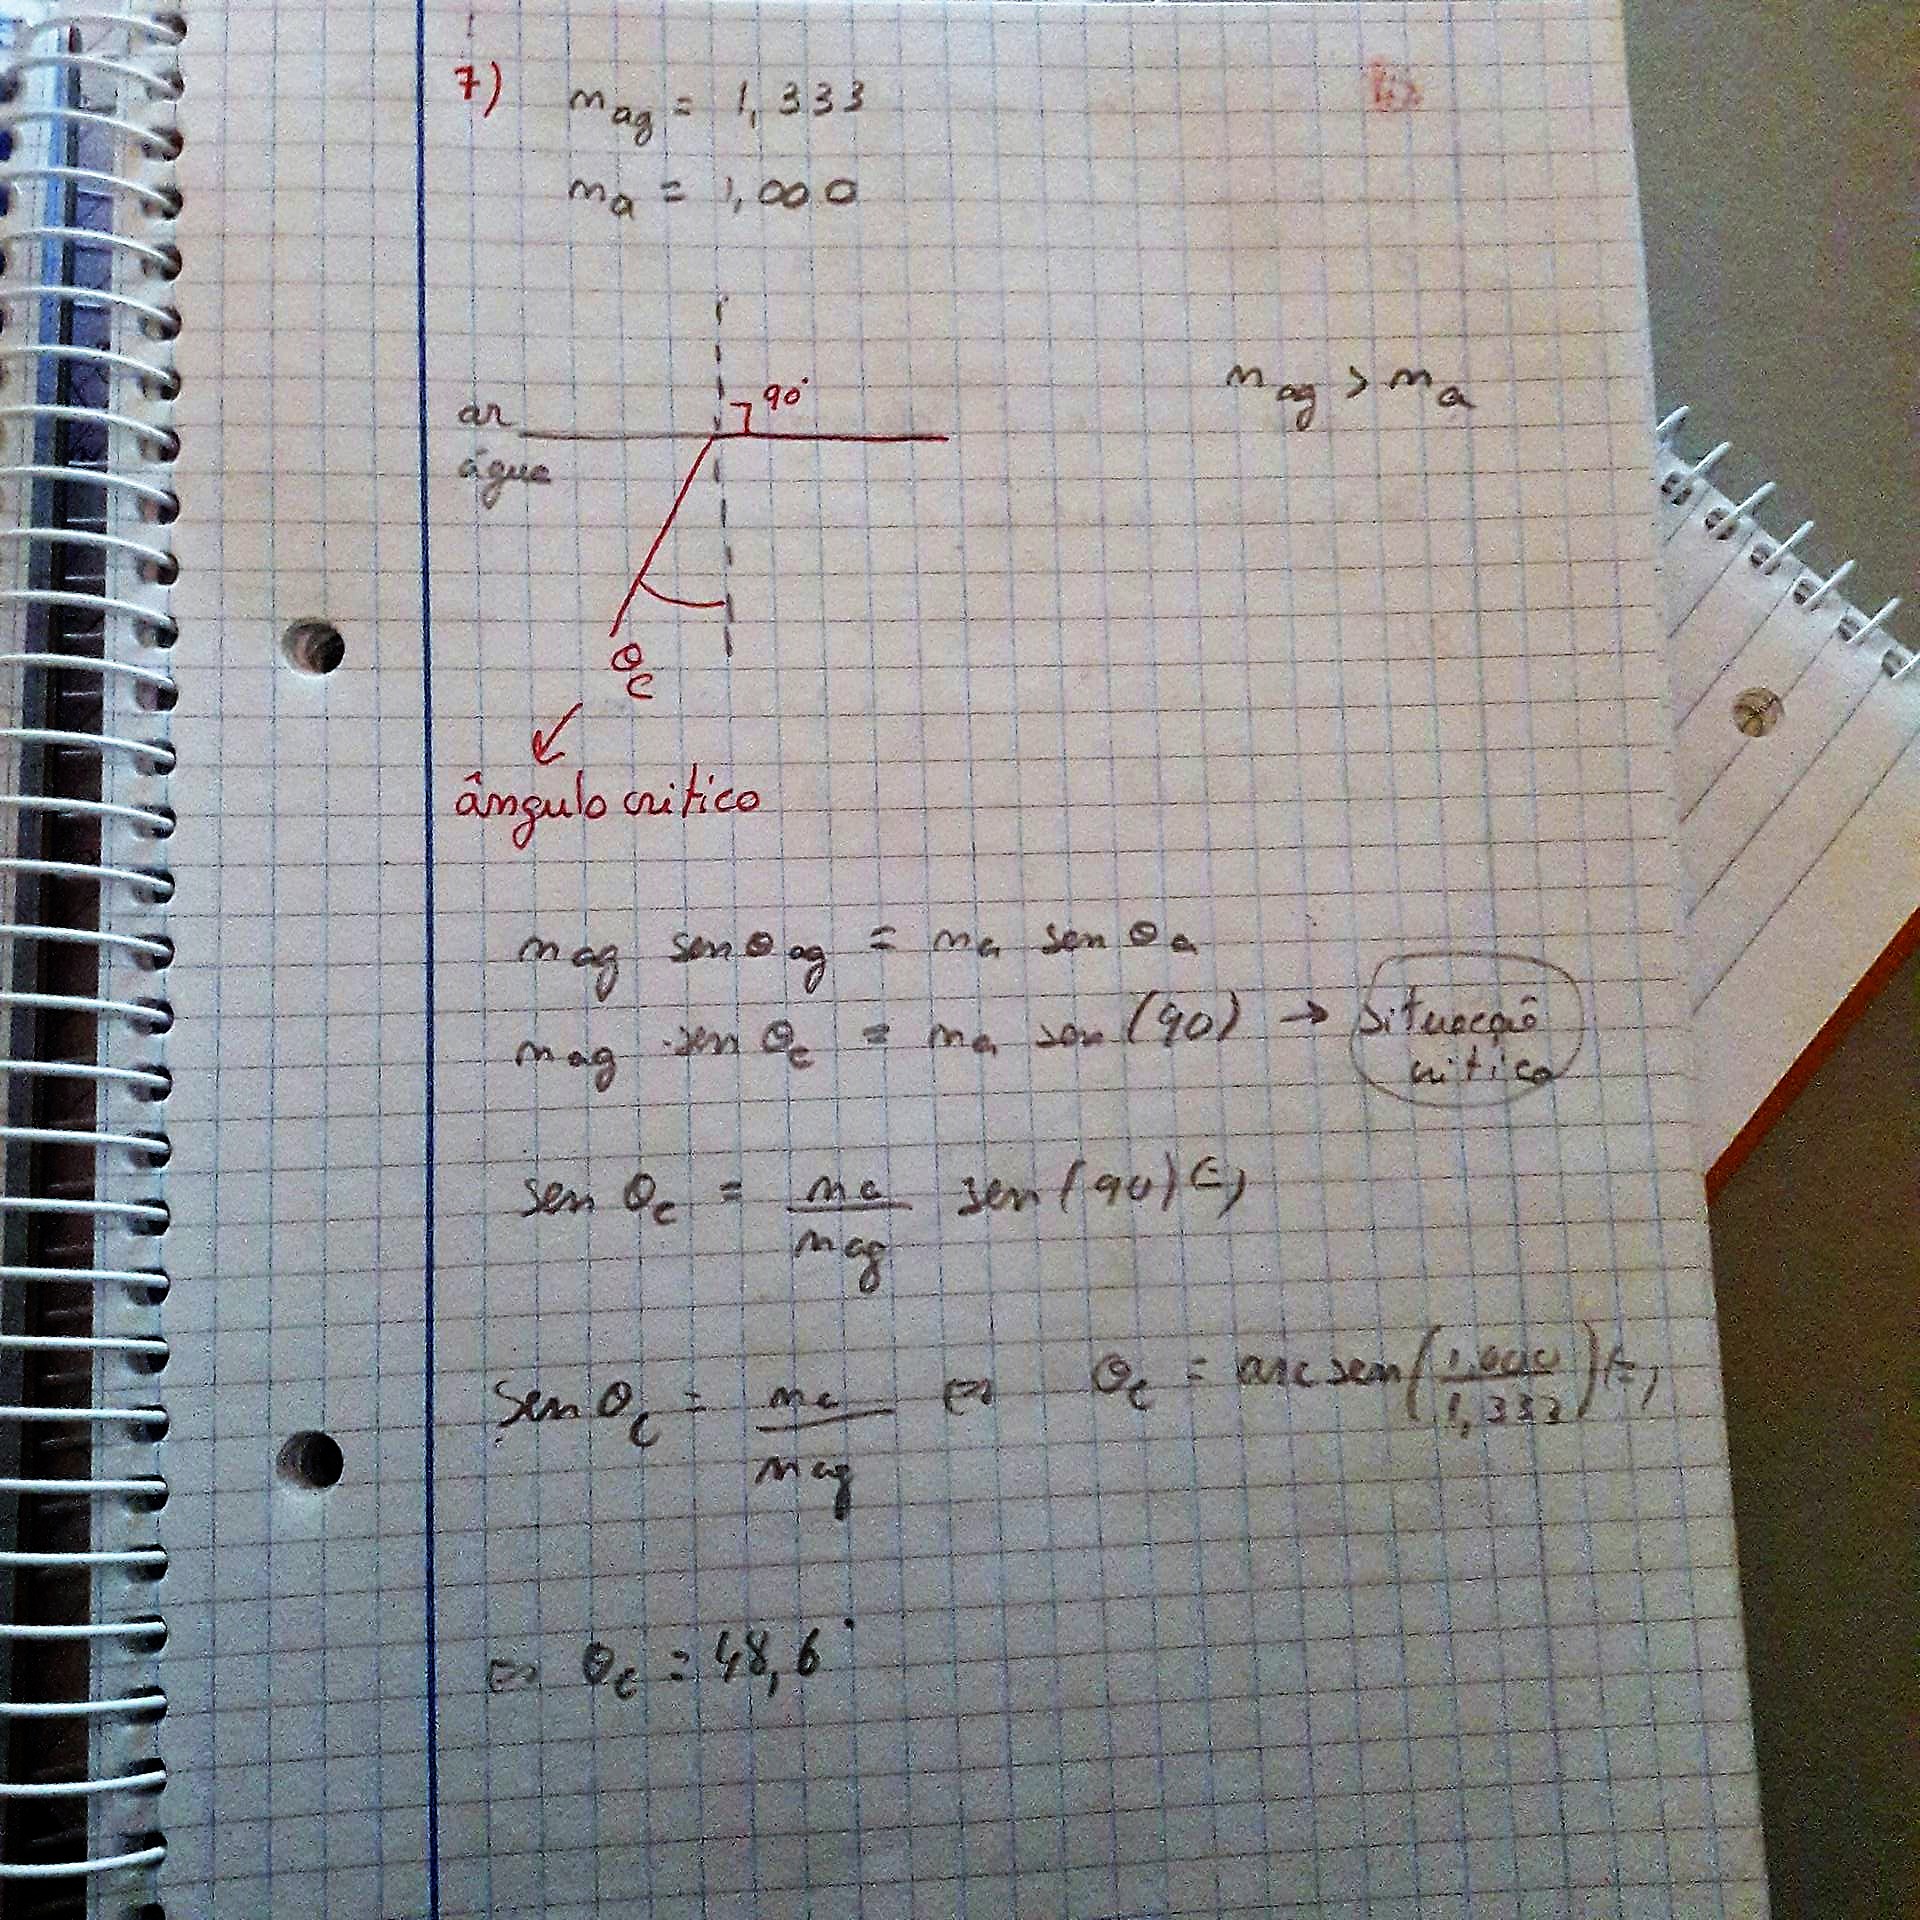 7) n ag = 1,333
n a = 1,000
90°
n ag > n a
ar
água
θc
ângulo critico
n ag sen θ ag = n a sen θ a
n ag sen θc = n a sen (90) → situação critica
sen θc = n a / n ag sen (90) ⇔
sen θc = n a / n ag ⇔ θc = arc sen (1,000 / 1,333) ⇔
⇔ θc = 48,6°